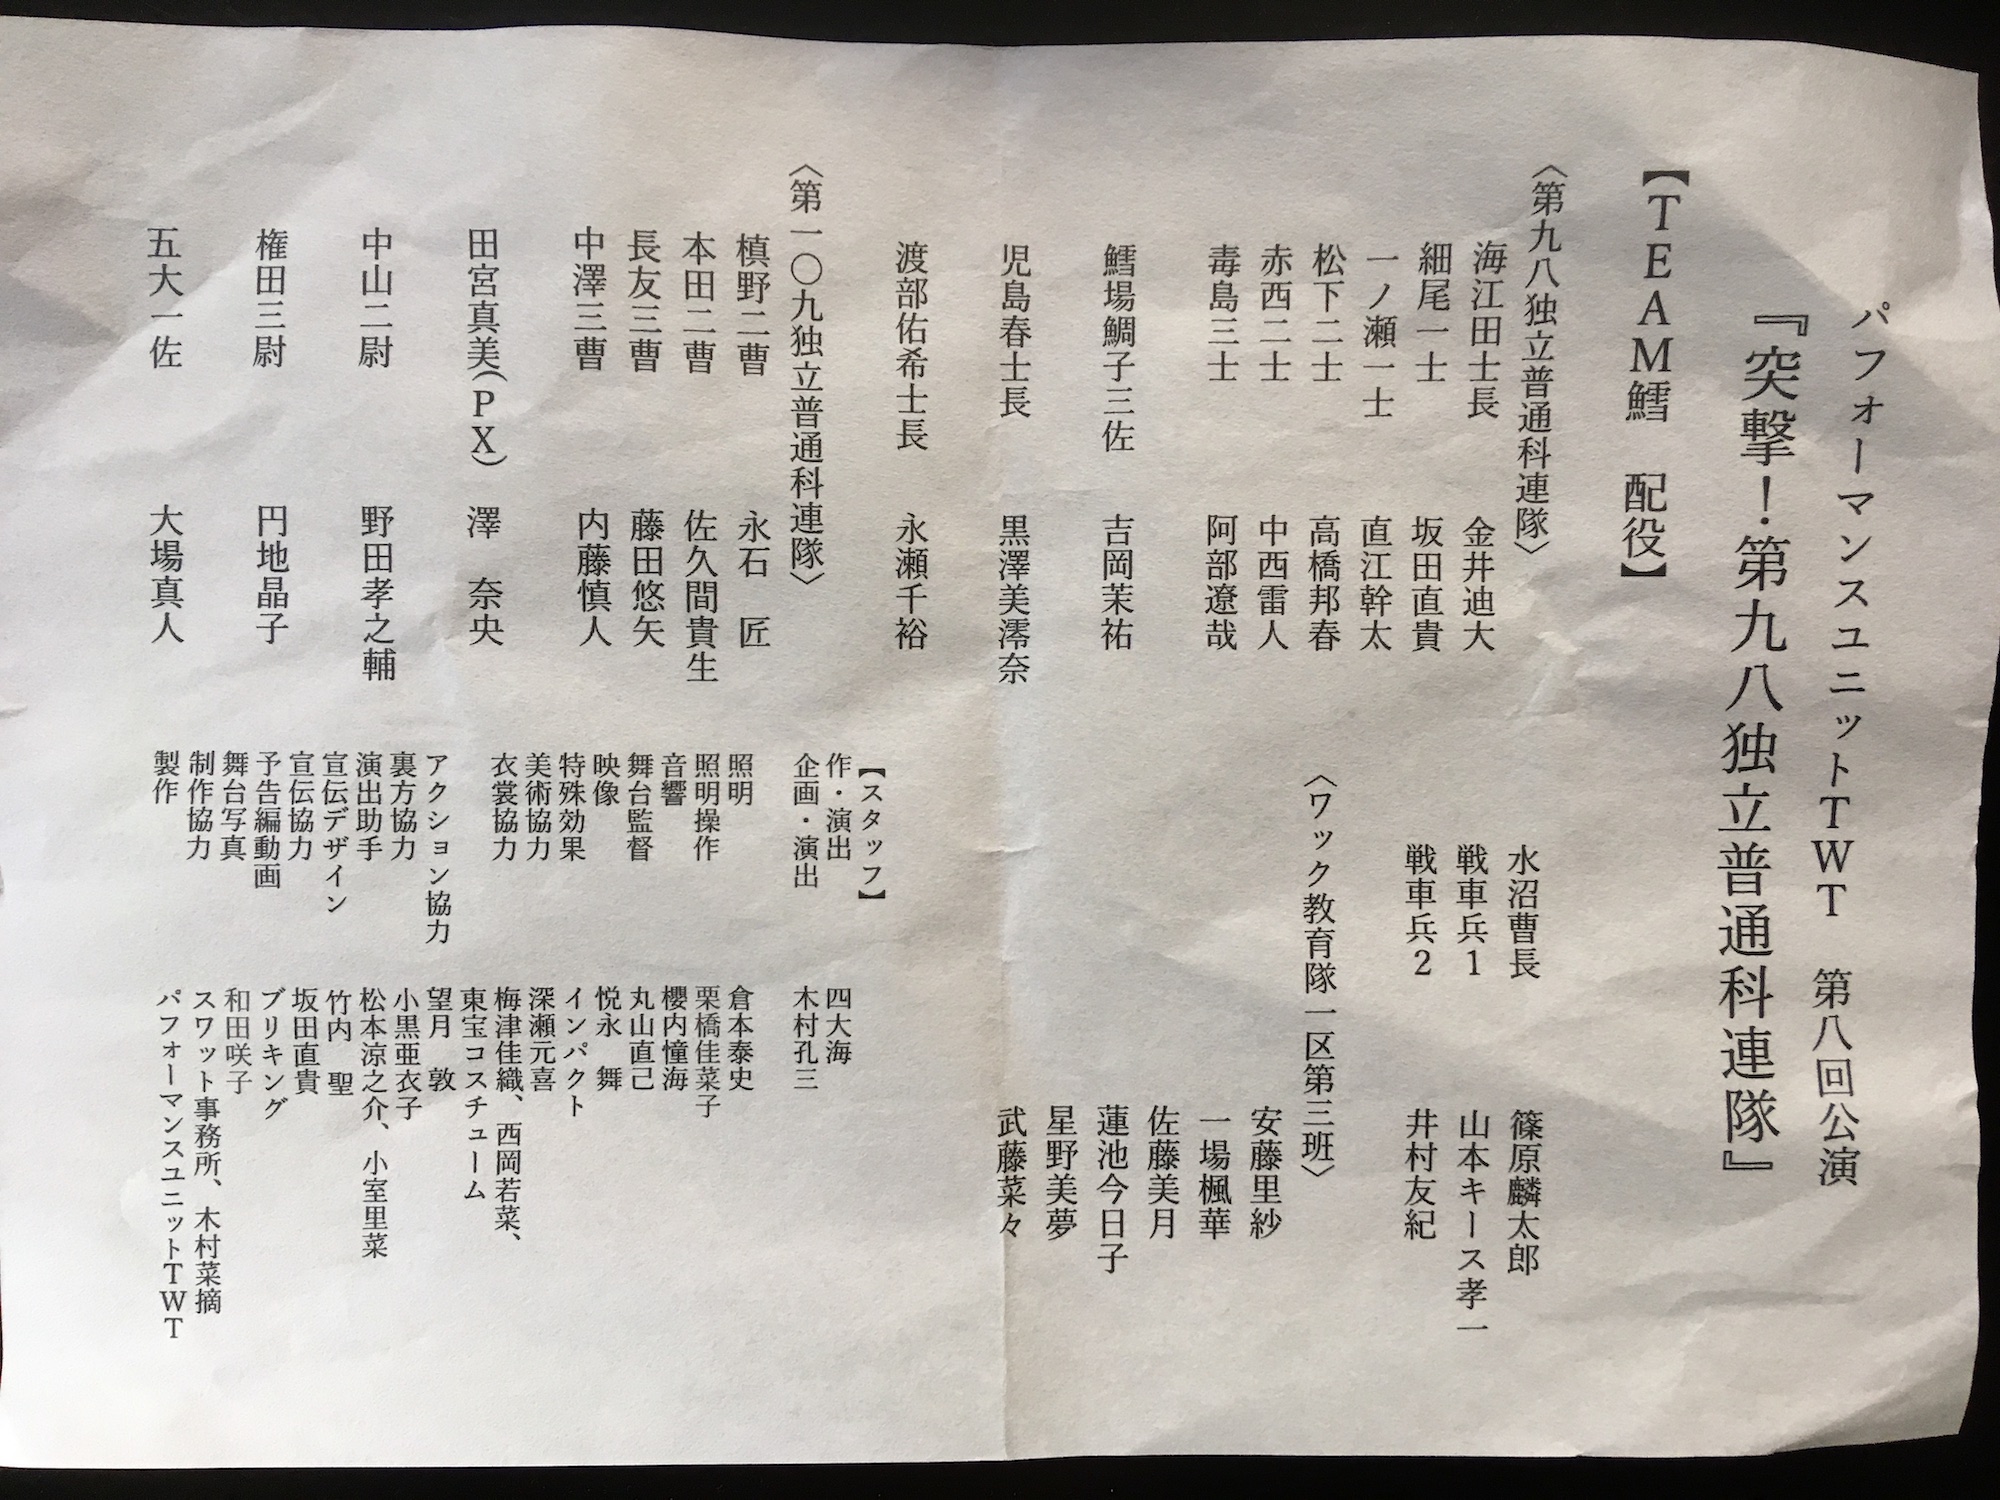 パフォーマンスユニットTWT　第八回公演
『突撃！第九八独立普通科連隊』
【TEAM鱈　配役】
〈第九八独立普通科連隊〉
海江田士長　金井迪大
細尾一士　坂田直貴
一ノ瀬一士　直江幹太
松下二士　高橋邦春
赤西二士　中西雷人
毒島三士　阿部遼哉
鱈場鯛子三佐　吉岡茉祐
児島春士長　黒澤美澪奈
渡部佑希士長　永瀬千裕
〈第一〇九独立普通科連隊〉
槙野二曹　永石　匠
本田二曹　佐久間貴生
長友三曹　藤田悠矢
中澤三曹　内藤慎人
田宮真美(PX)　澤　奈央
中山二尉　野田孝之輔
権田三尉　円地晶子
五大一佐　大場真人
水沼曹長　篠原麟太郎
戦車兵1　山本キース孝一
戦車兵2　井村友紀
〈ワック教育隊一区第三班〉
安藤里紗
一場楓華
佐藤美月
蓮池今日子
星野美夢
武藤菜々
【スタッフ】
作・演出　四大海
企画・演出　木村孔三
照明　倉本泰史
照明操作　栗橋佳菜子
音響　櫻内憧海
舞台監督　丸山直己
映像　悦永　舞
特殊効果　インパクト
美術協力　深瀬元喜
衣裳協力　梅津佳織、西岡若菜、
東宝コスチューム
アクション協力　望月　敦
裏方協力　小黒亜衣子
演出助手　松本涼之介、小室里菜
宣伝デザイン　竹内　聖
宣伝協力　坂田直貴
予告編動画　ブリキング
舞台写真　和田咲子
制作協力　スワット事務所、木村菜摘
製作　パフォーマンスユニットTWT